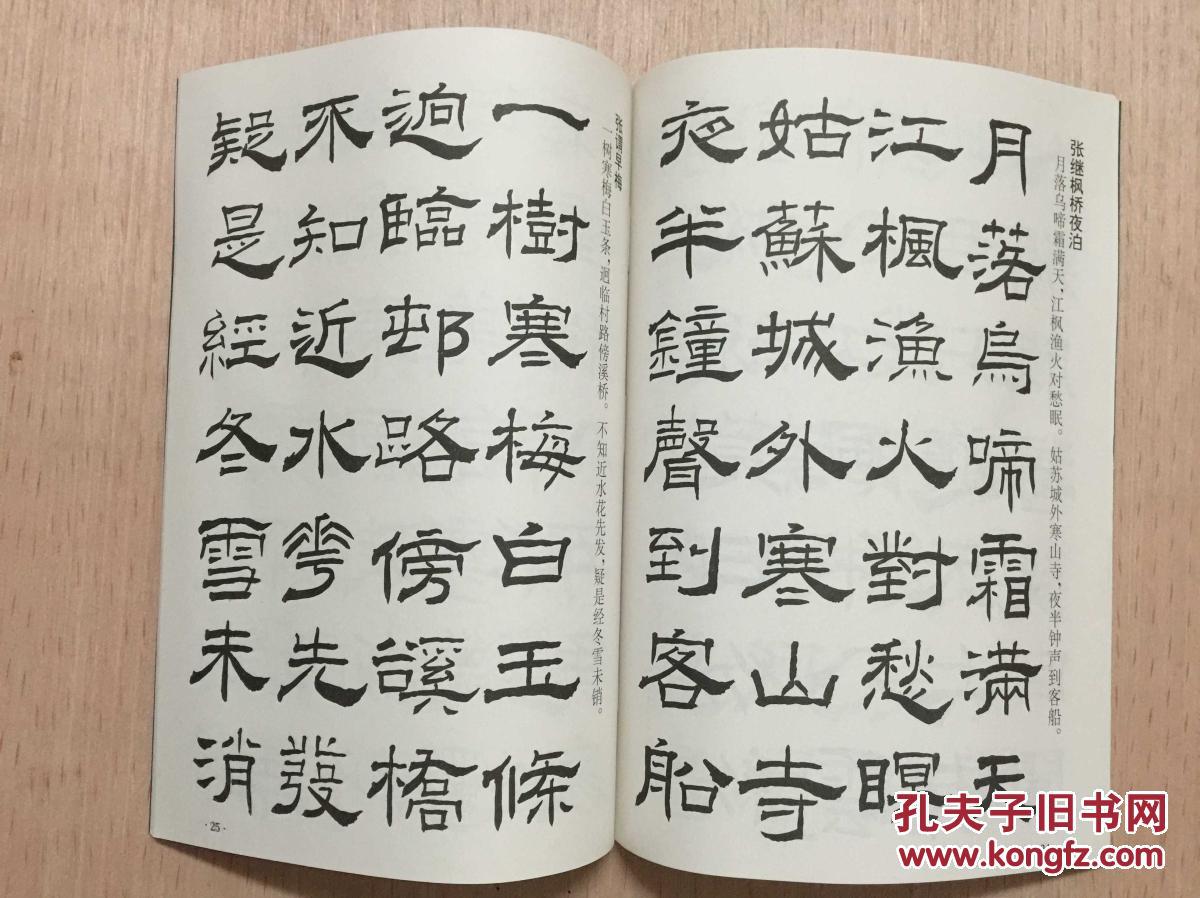 张继枫桥夜泊
月落乌啼霜满天，江枫渔火对愁眠。 姑苏城外寒山寺，夜半钟声到客船。
月落烏啼霜滿天
江楓漁火對愁眠
姑蘇城外寒山寺
夜半鐘聲到客船
张谓早梅
一树寒梅白玉条，迥临村路傍溪桥。 不知近水花先发，疑是经冬雪未销。
一樹寒梅白玉條
迥臨邨路傍谿橋
不知近水花先發
疑是經冬雪未消
·25·
孔夫子旧书网
www.kongfz.com